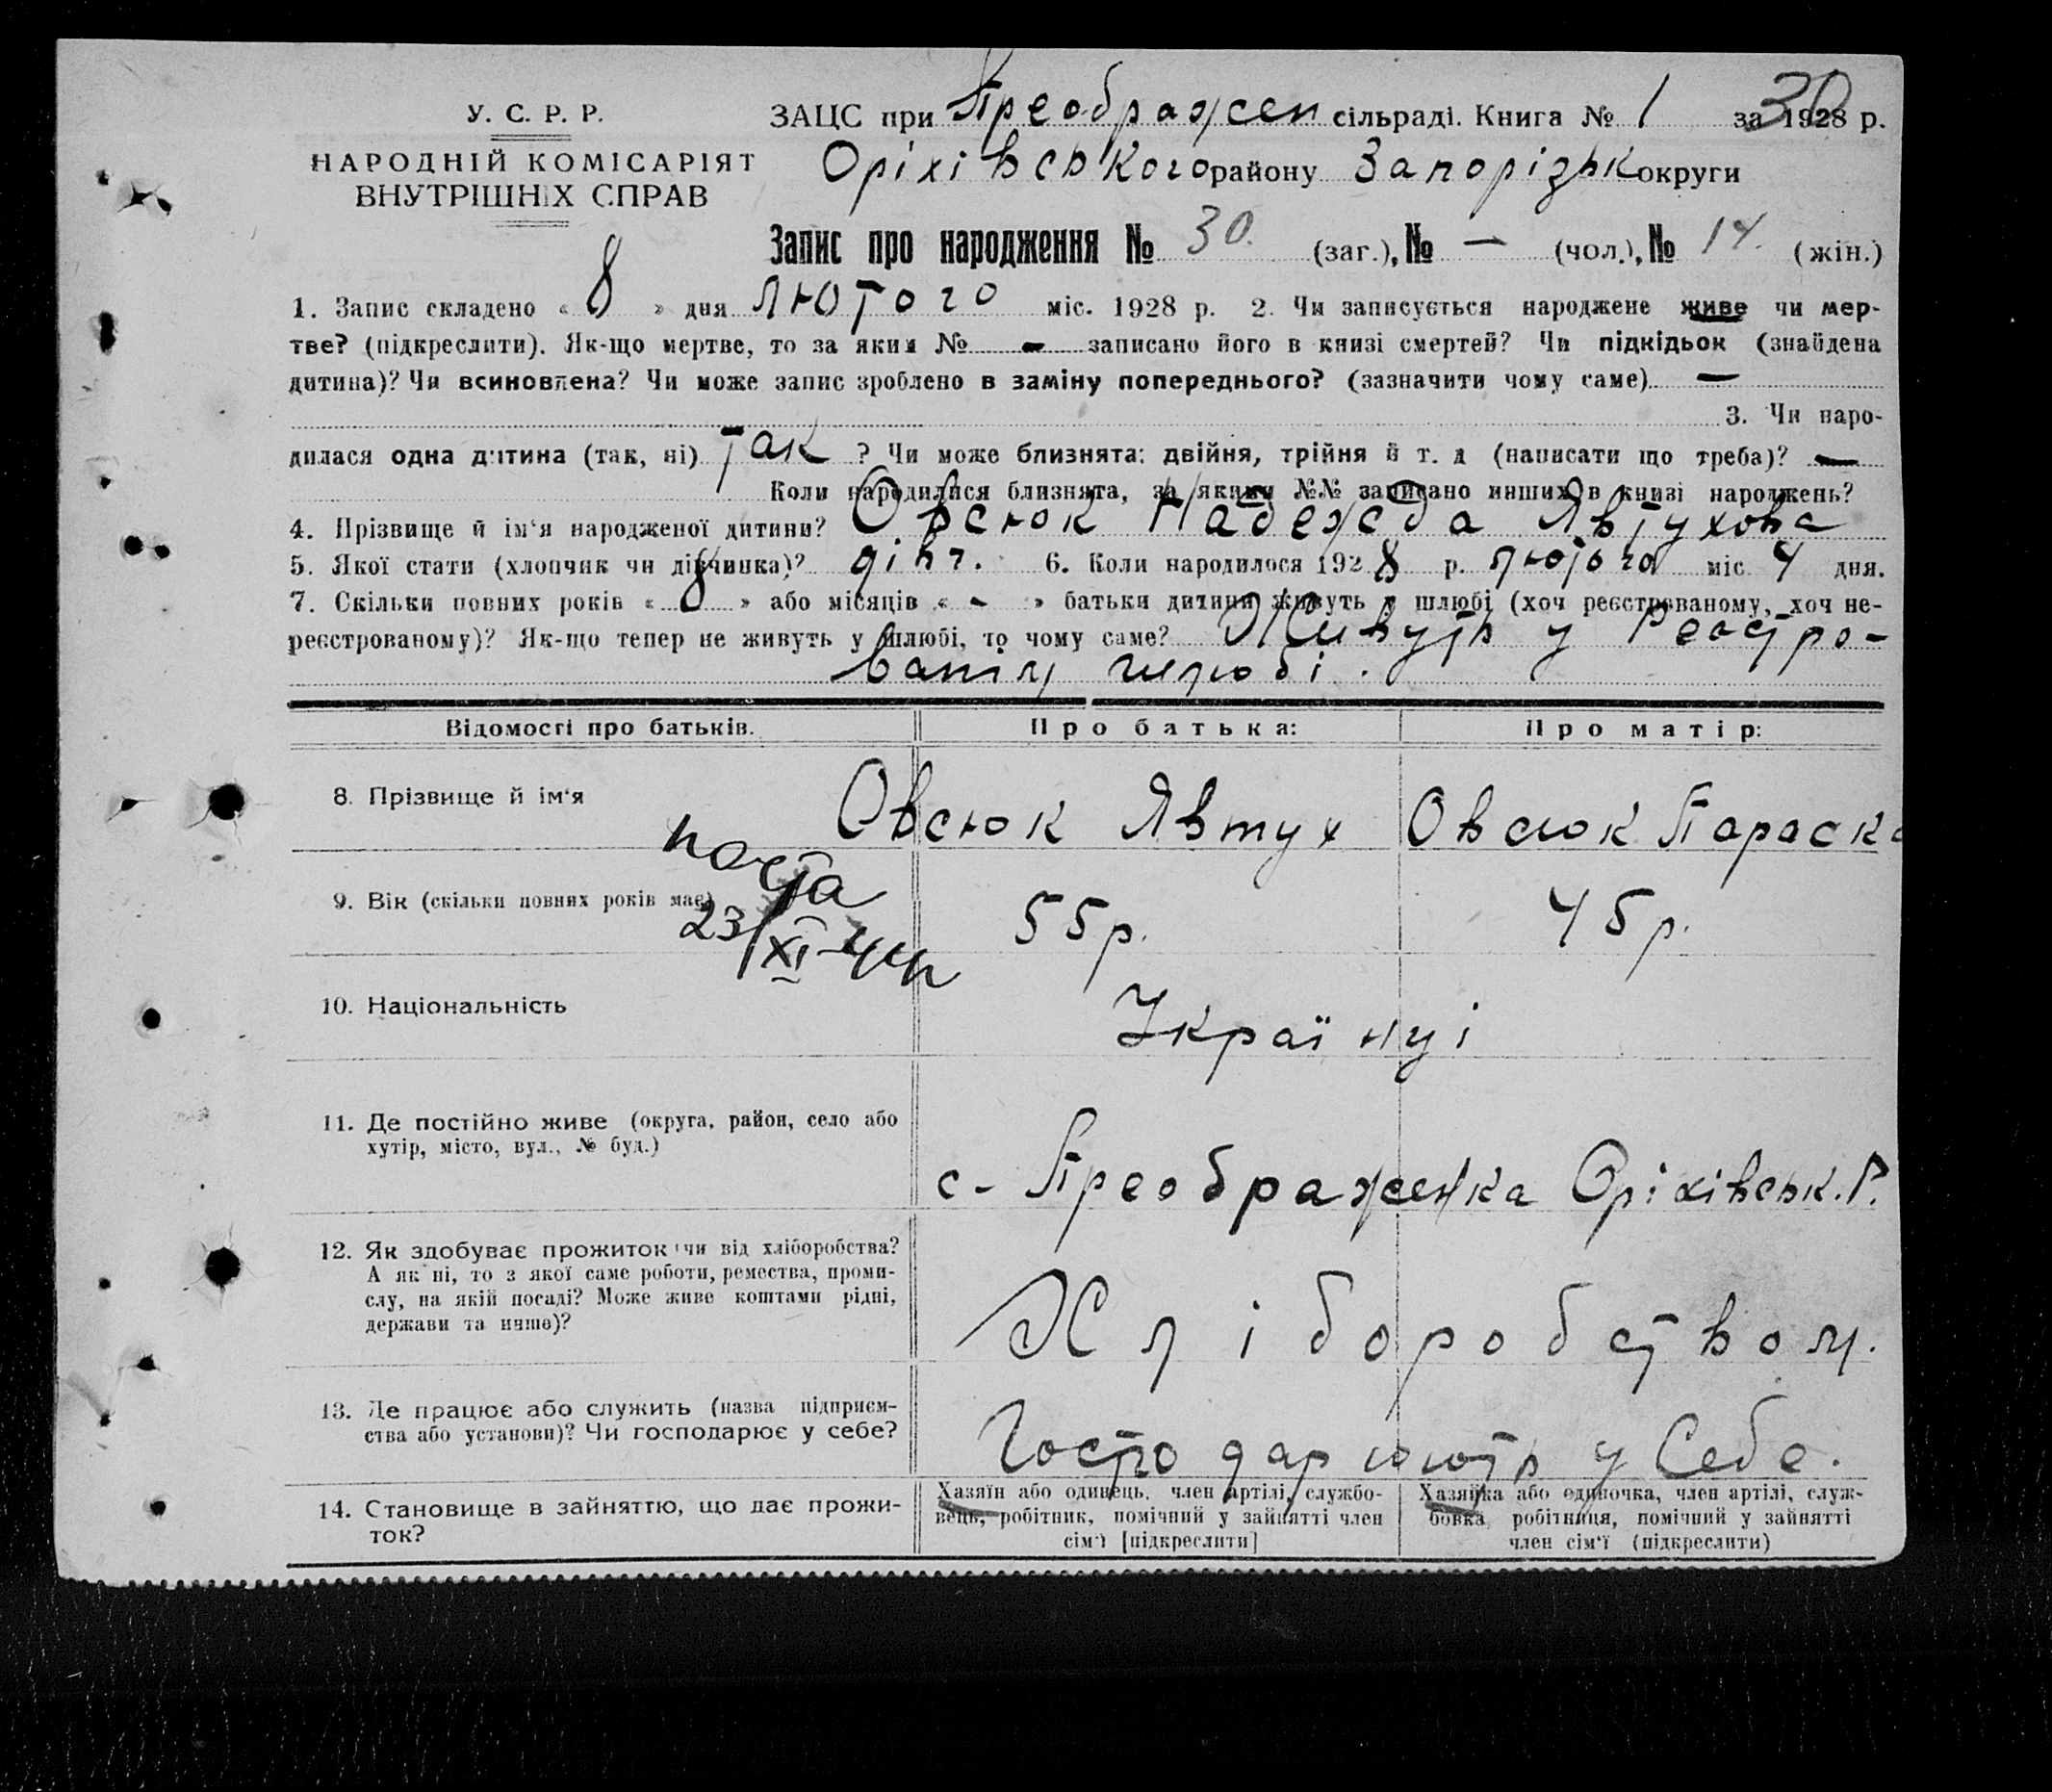 30
У. С. Р. Р.
НАРОДНІЙ КОМІСАРІЯТ
ВНУТРІШНІХ СПРАВ
ЗАЦС при Преображен сільраді. Книга № 1 за 1928 р.
Оріхівського району Запорізьк округи
Запис про народження № 30. (заг.), № — (чол.), № 14. (жін.)
1. Запис складено « 8 » дня Лютого міс. 1928 р. 2. Чи записується народжене живе чи мер-
тве? (підкреслити). Як-що мертве, то за яким № - записано його в книзі смертей? Чи підкідьок (знайдена
дитина)? Чи всиновлена? Чи може запис зроблено в заміну попереднього? (зазначити чому саме) —
3. Чи наро-
дилася одна дитина (так, ні) так ? Чи може близнята: двійня, трійня й т. д (написати що треба)? —
Коли народилися близнята, за якими №№ записано инших в книзі народжень?
4. Прізвище й ім'я народженої дитини? Овсюк Надежда Явтухова
5. Якої стати (хлопчик чи дівчинка)? дівч. 6. Коли народилося 1928 р. лютого міс 4 дня.
7. Скільки повних років « 8 » або місяців « - » батьки дитини живуть у шлюбі (хоч реєстрованому, хоч не-
реєстрованому)? Як-що тепер не живуть у шлюбі, то чому саме? Живуть у Реєстро-
ванім шлюбі.
Відомості про батьків.
Про батька:
Про матір:
8. Прізвище й ім'я
Овсюк Явтух
Овсюк Параска
9. Вік (скільки повних років має)
23/XI
55 р.
45 р.
10. Національність
Українці
11. Де постійно живе (округа, район, село або
хутір, місто, вул., № буд.)
с - Преображенка Оріхівськ. Р.
12. Як здобуває прожиток чи від хліборобства?
А як ні, то з якої саме роботи, ремества, проми-
слу, на якій посаді? Може живе коштами рідні,
держави та инше)?
Хліборобством.
13. Де працює або служить (назва підприєм-
ства або установи)? Чи господарює у себе?
Господарюють у Себе.
14. Становище в зайняттю, що дає прожи-
ток?
Хазяїн або одинець, член артілі, службо-
вець, робітник, помічний у зайнятті член
сім'ї [підкреслити]
Хазяйка або одиночка, член артілі, служ-
бовка робітниця, помічний у зайнятті
член сім'ї (підкреслити)